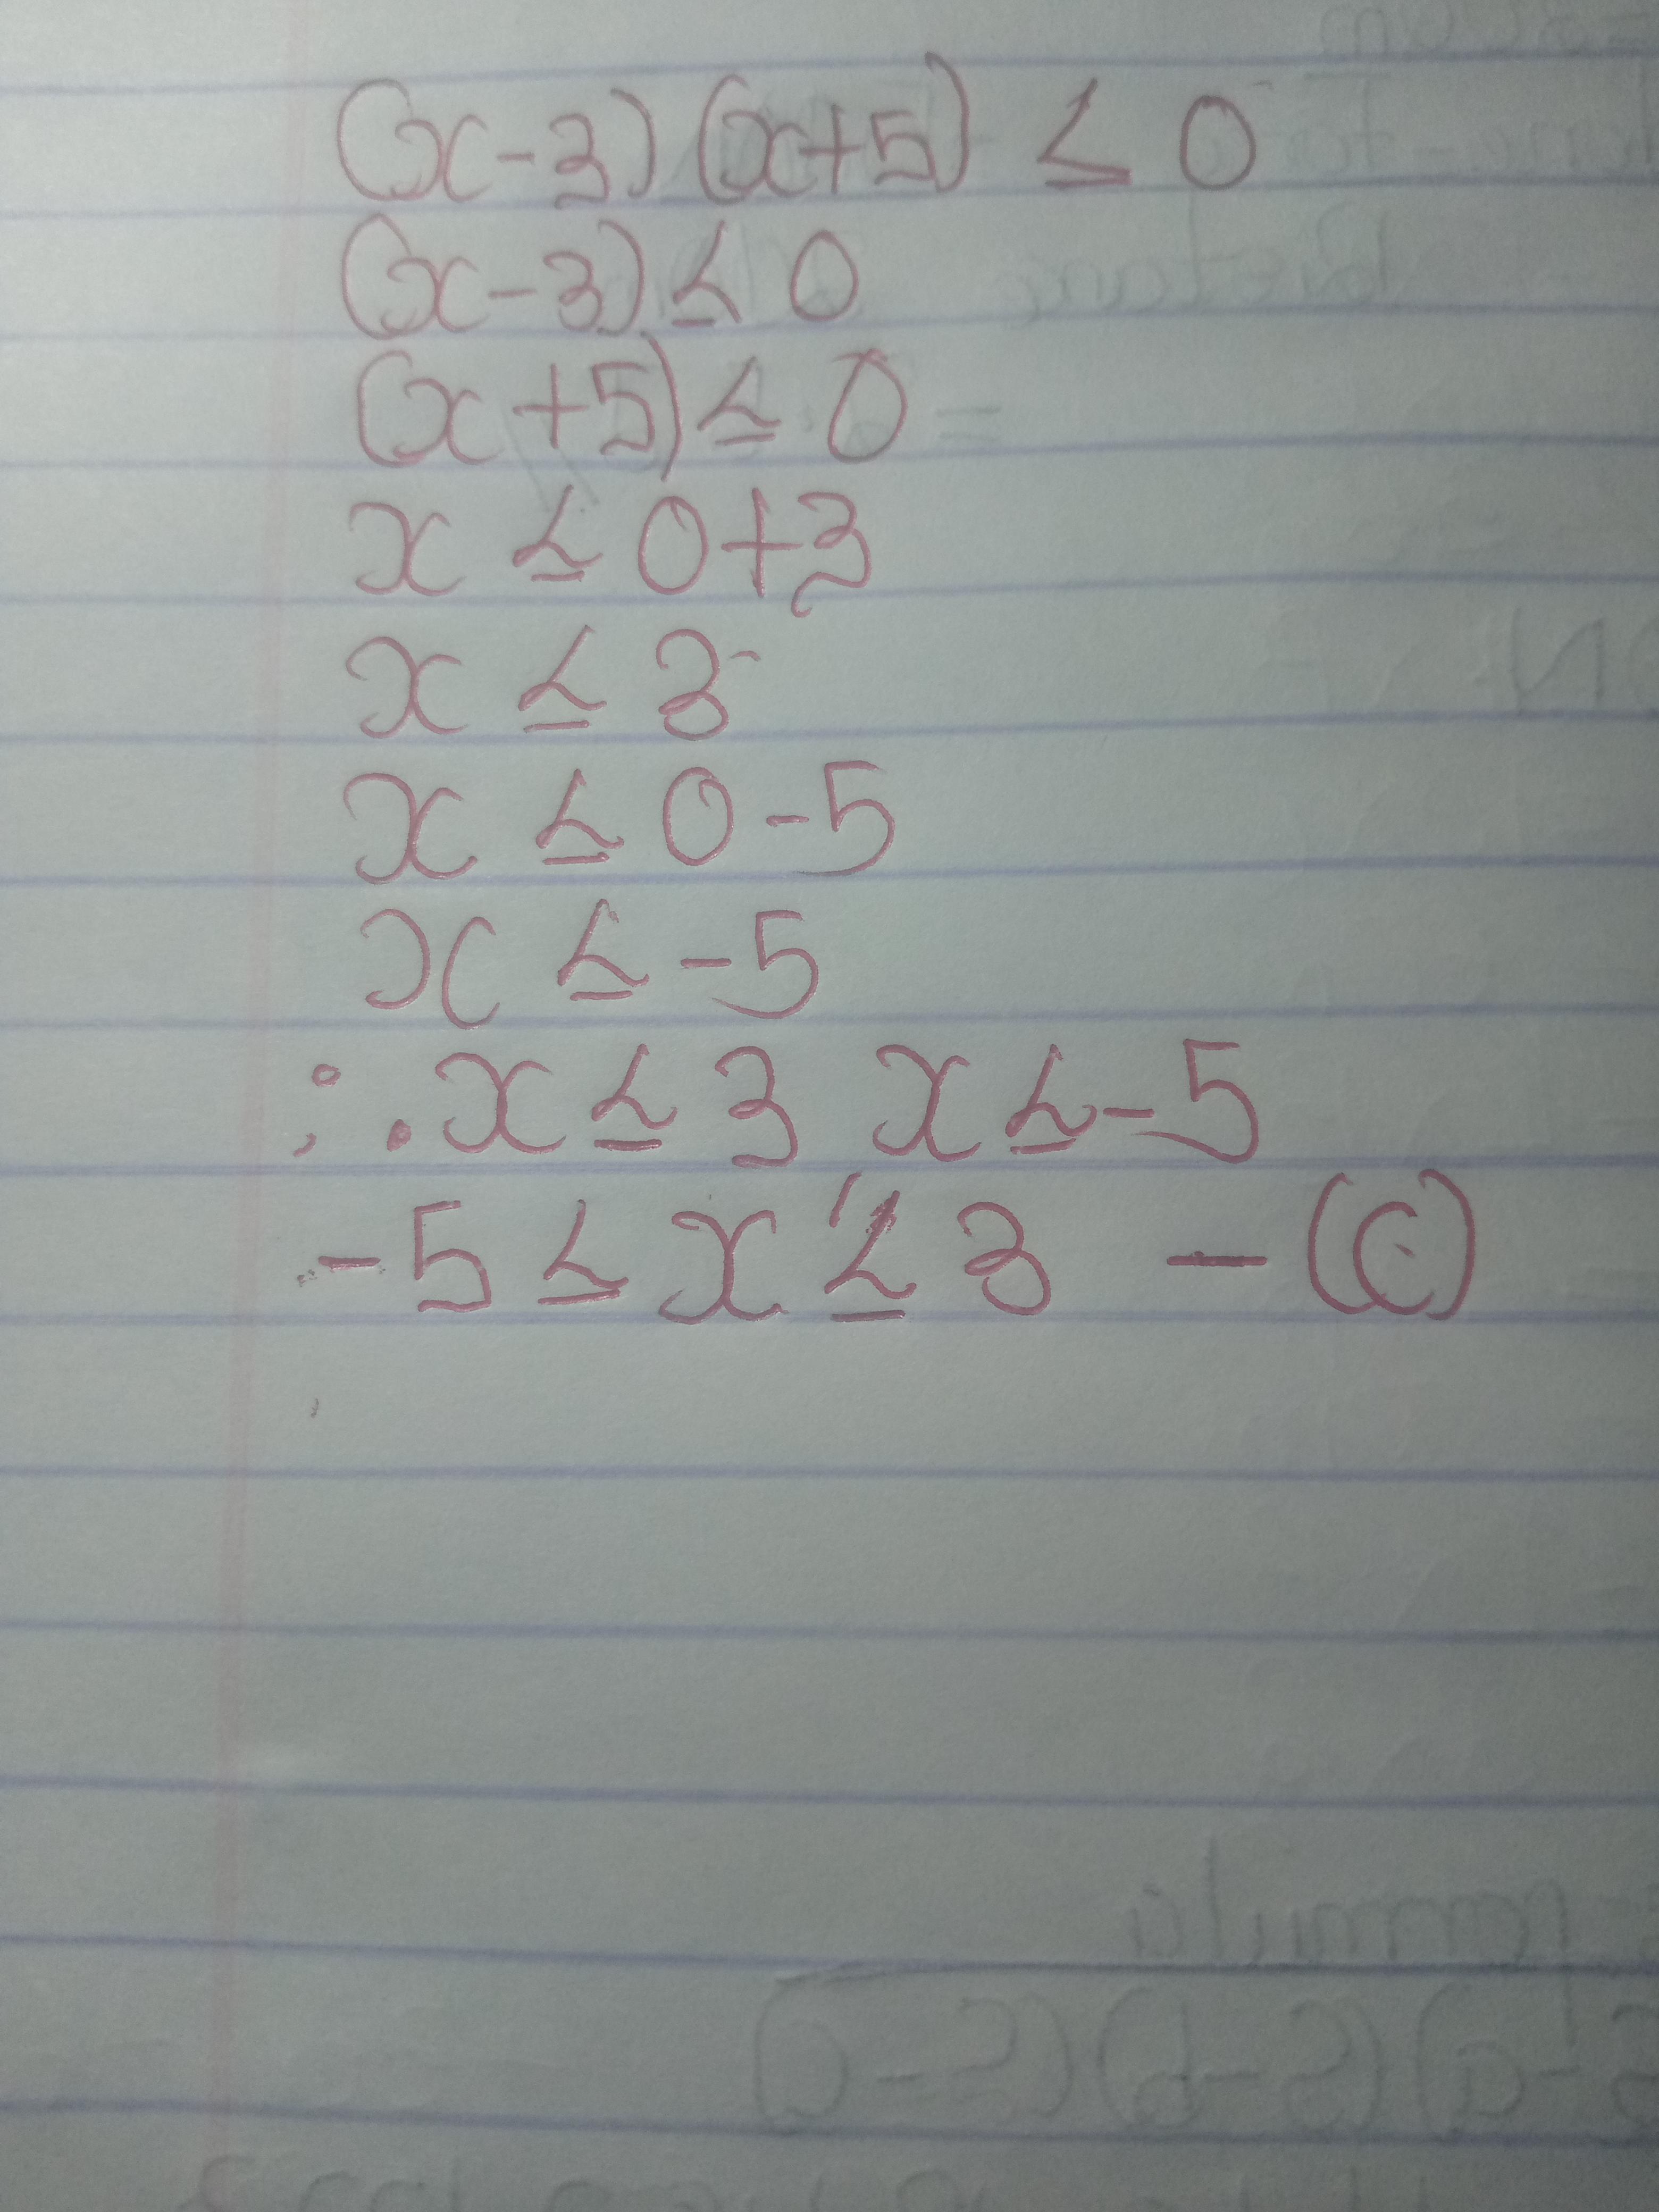 (x-3) (x+5) ≤ 0
(x-3) ≤ 0
(x+5) ≤ 0
x ≤ 0+3
x ≤ 3
x ≤ 0-5
x ≤ -5
∴ x ≤ 3 x ≤ -5
-5 ≤ x ≤ 3 - (C)